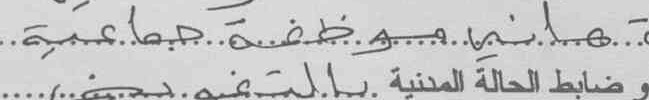 تهاني موظفة جماعية
و ضابط الحالة المدنية بالتفويض